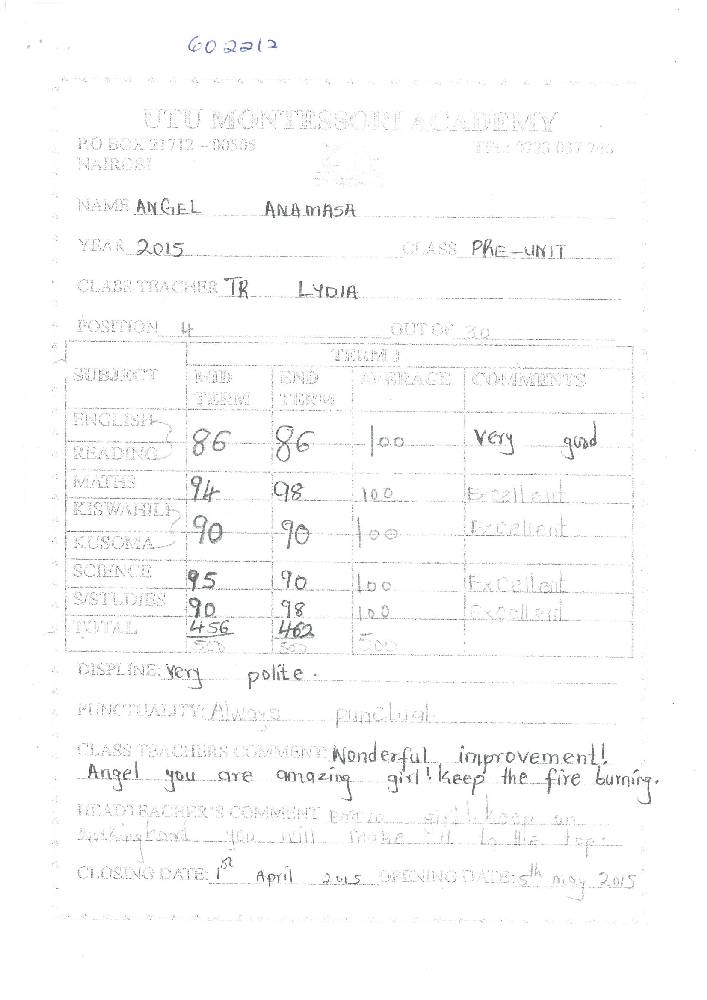 602212
UTU MONTESSORI ACADEMY
P.O BOX 21712 – 00505
NAIROBI
NAME ANGEL ANAMASA
YEAR 2015 CLASS PRE-UNIT
CLASS TEACHER TR LYDIA
POSITION 4 OUT OF 30
TERM 1
SUBJECT MID TERM END TERM AVERAGE COMMENTS
ENGLISH READING 86 86 100 Very good
MATHS 94 98 100 Excellent
KISWAHILI KUSOMA 90 90 100 Excellent
SCIENCE 95 90 100 Excellent
S/STUDIES 90 98 100 Excellent
TOTAL 456/500 462/500 500
DISPLINE: Very polite.
PUNCTUALITY: Always punctual
CLASS TEACHERS COMMENT: Wonderful improvement!
Angel you are amazing girl! keep the fire burning.
HEADTEACHER'S COMMENT girl! keep on
you will make it to the top.
CLOSING DATE: 1st April 2015 OPENING DATE: 5th may 2015